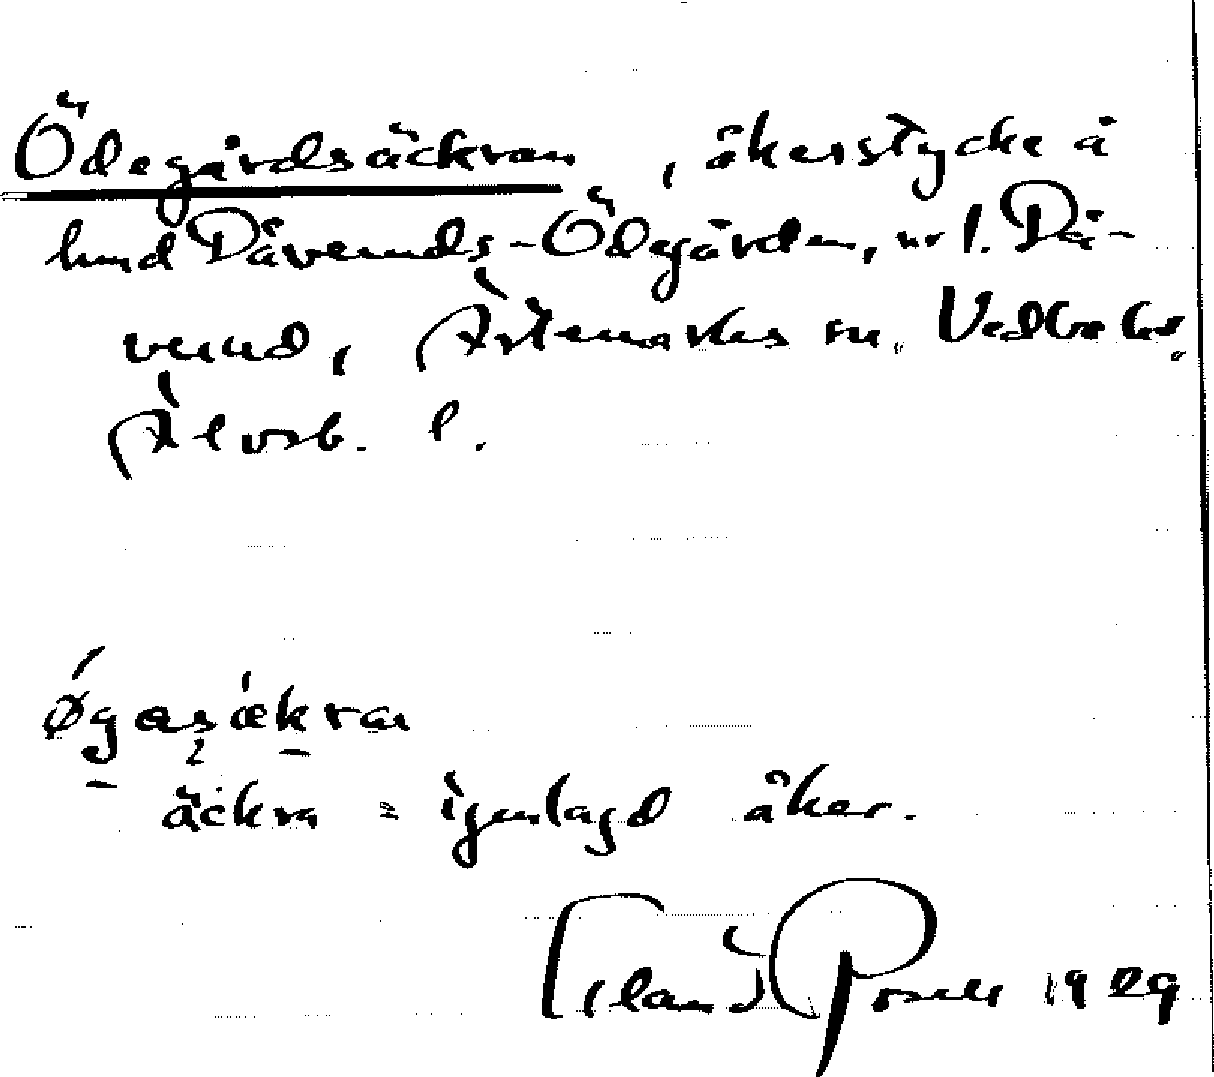 Ödegårdsäckran, åkerstycke å
hmd Dåveruds-Ödegården, nr 1. Då-
verud, Ärtemarks sn, Vedbo hd.
Älvsb. l.
øgasækran
äckra = igenlagd åker.
1929